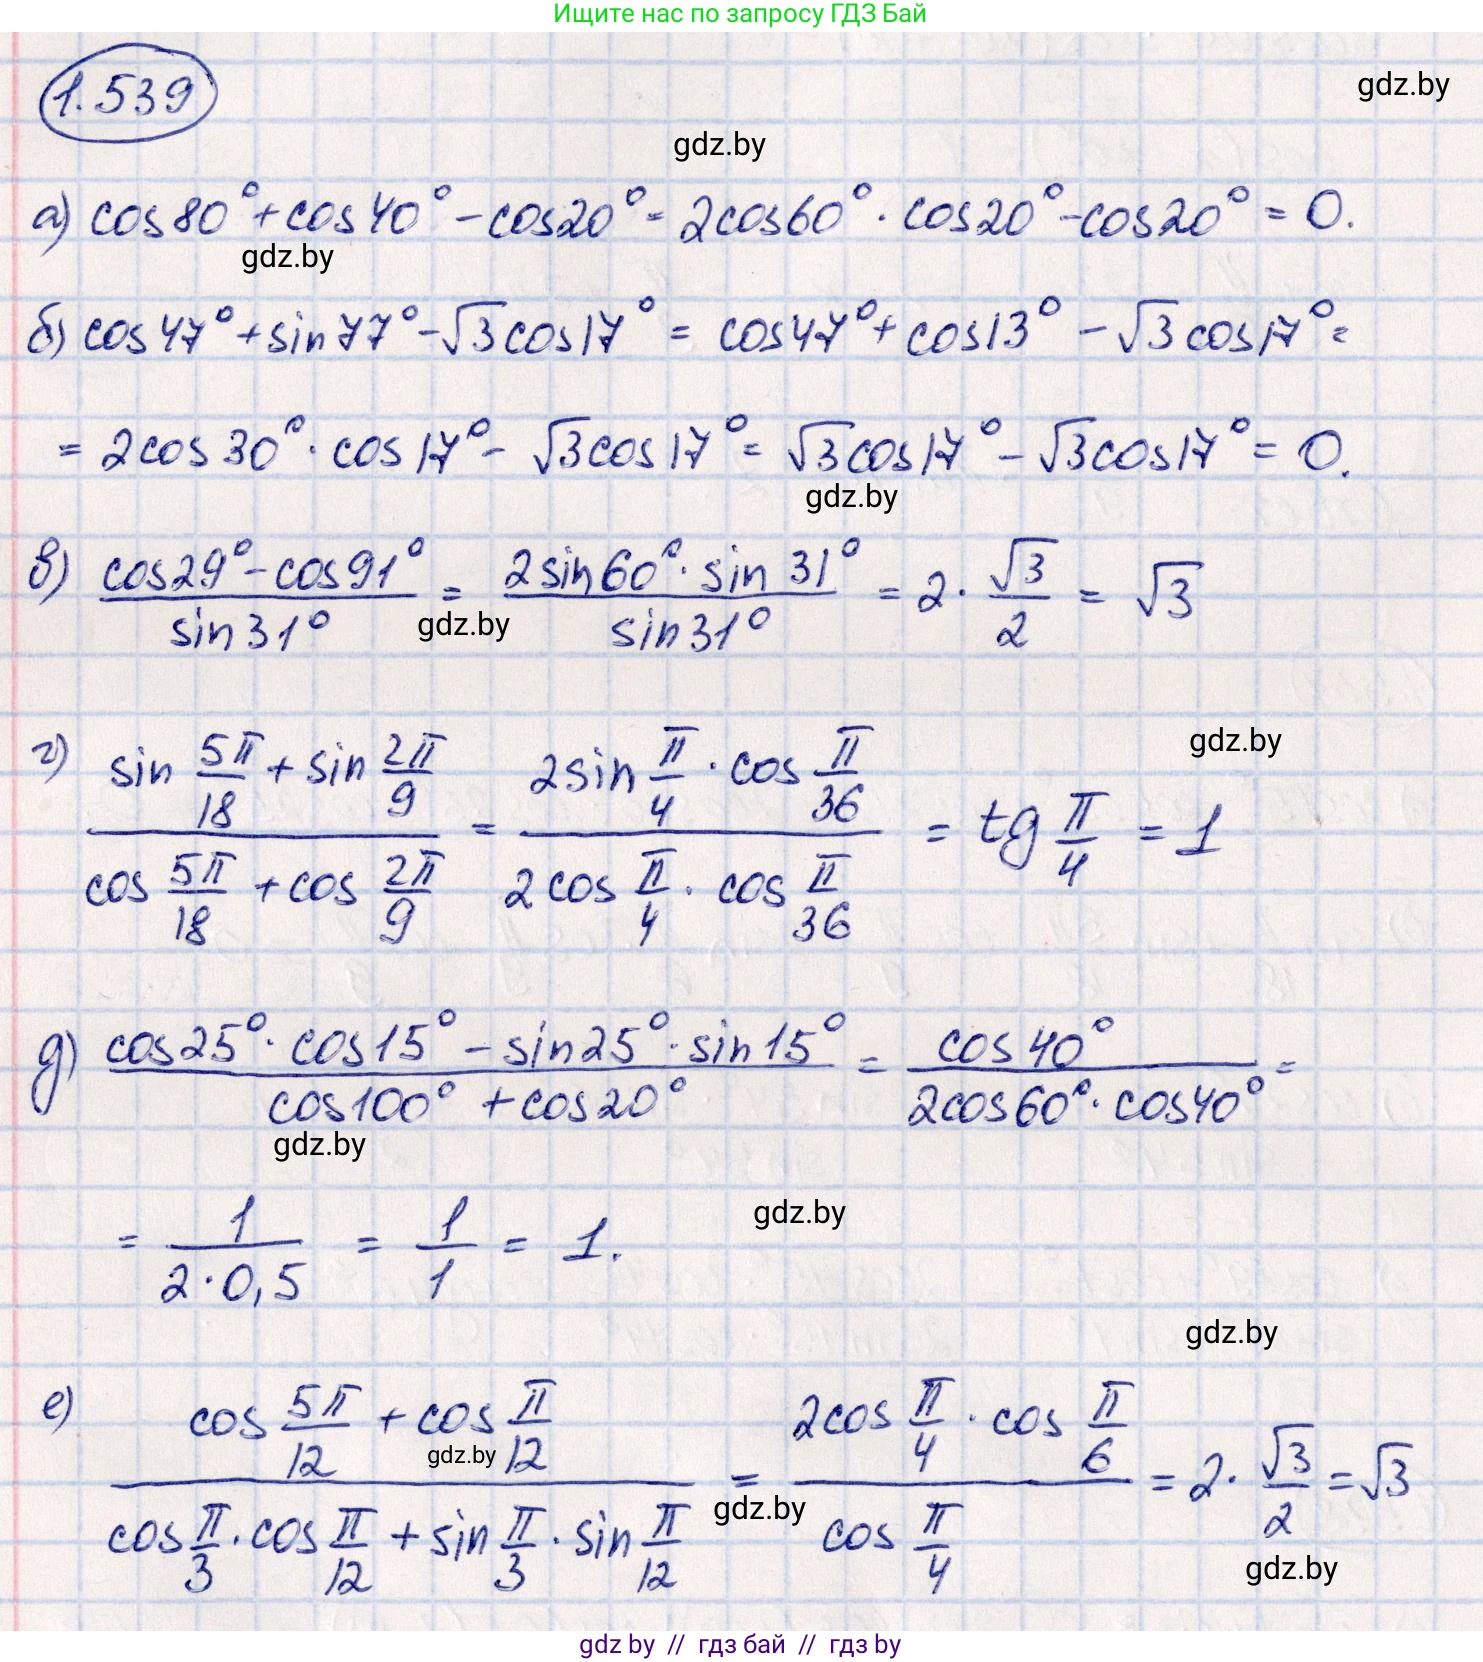 Ищите нас по запросу ГДЗ Бай
1.539
gdz.by
gdz.by
а) cos80° + cos40° - cos20° = 2cos60° · cos20° - cos20° = 0.
gdz.by
б) cos47° + sin77° - √3cos17° = cos47° + cos13° - √3cos17° =
= 2cos30° · cos17° - √3cos17° = √3cos17° - √3cos17° = 0.
gdz.by
в) (cos29° - cos91°)/(sin31°) = (2sin60° · sin31°)/(sin31°) = 2 · √3/2 = √3
gdz.by
gdz.by
г) (sin 5π/18 + sin 2π/9)/(cos 5π/18 + cos 2π/9) = (2sin π/4 · cos π/36)/(2cos π/4 · cos π/36) = tg π/4 = 1
д) (cos25° · cos15° - sin25° · sin15°)/(cos100° + cos20°) = (cos40°)/(2cos60° · cos40°) =
gdz.by
= 1/(2·0,5) = 1/1 = 1.
gdz.by
gdz.by
е) (cos 5π/12 + cos π/12)/(cos π/3 · cos π/12 + sin π/3 · sin π/12) = (2cos π/4 · cos π/6)/(cos π/4) = 2 · √3/2 = √3
gdz.by
gdz.by
gdz.by
gdz by // гдз бай // гдз by